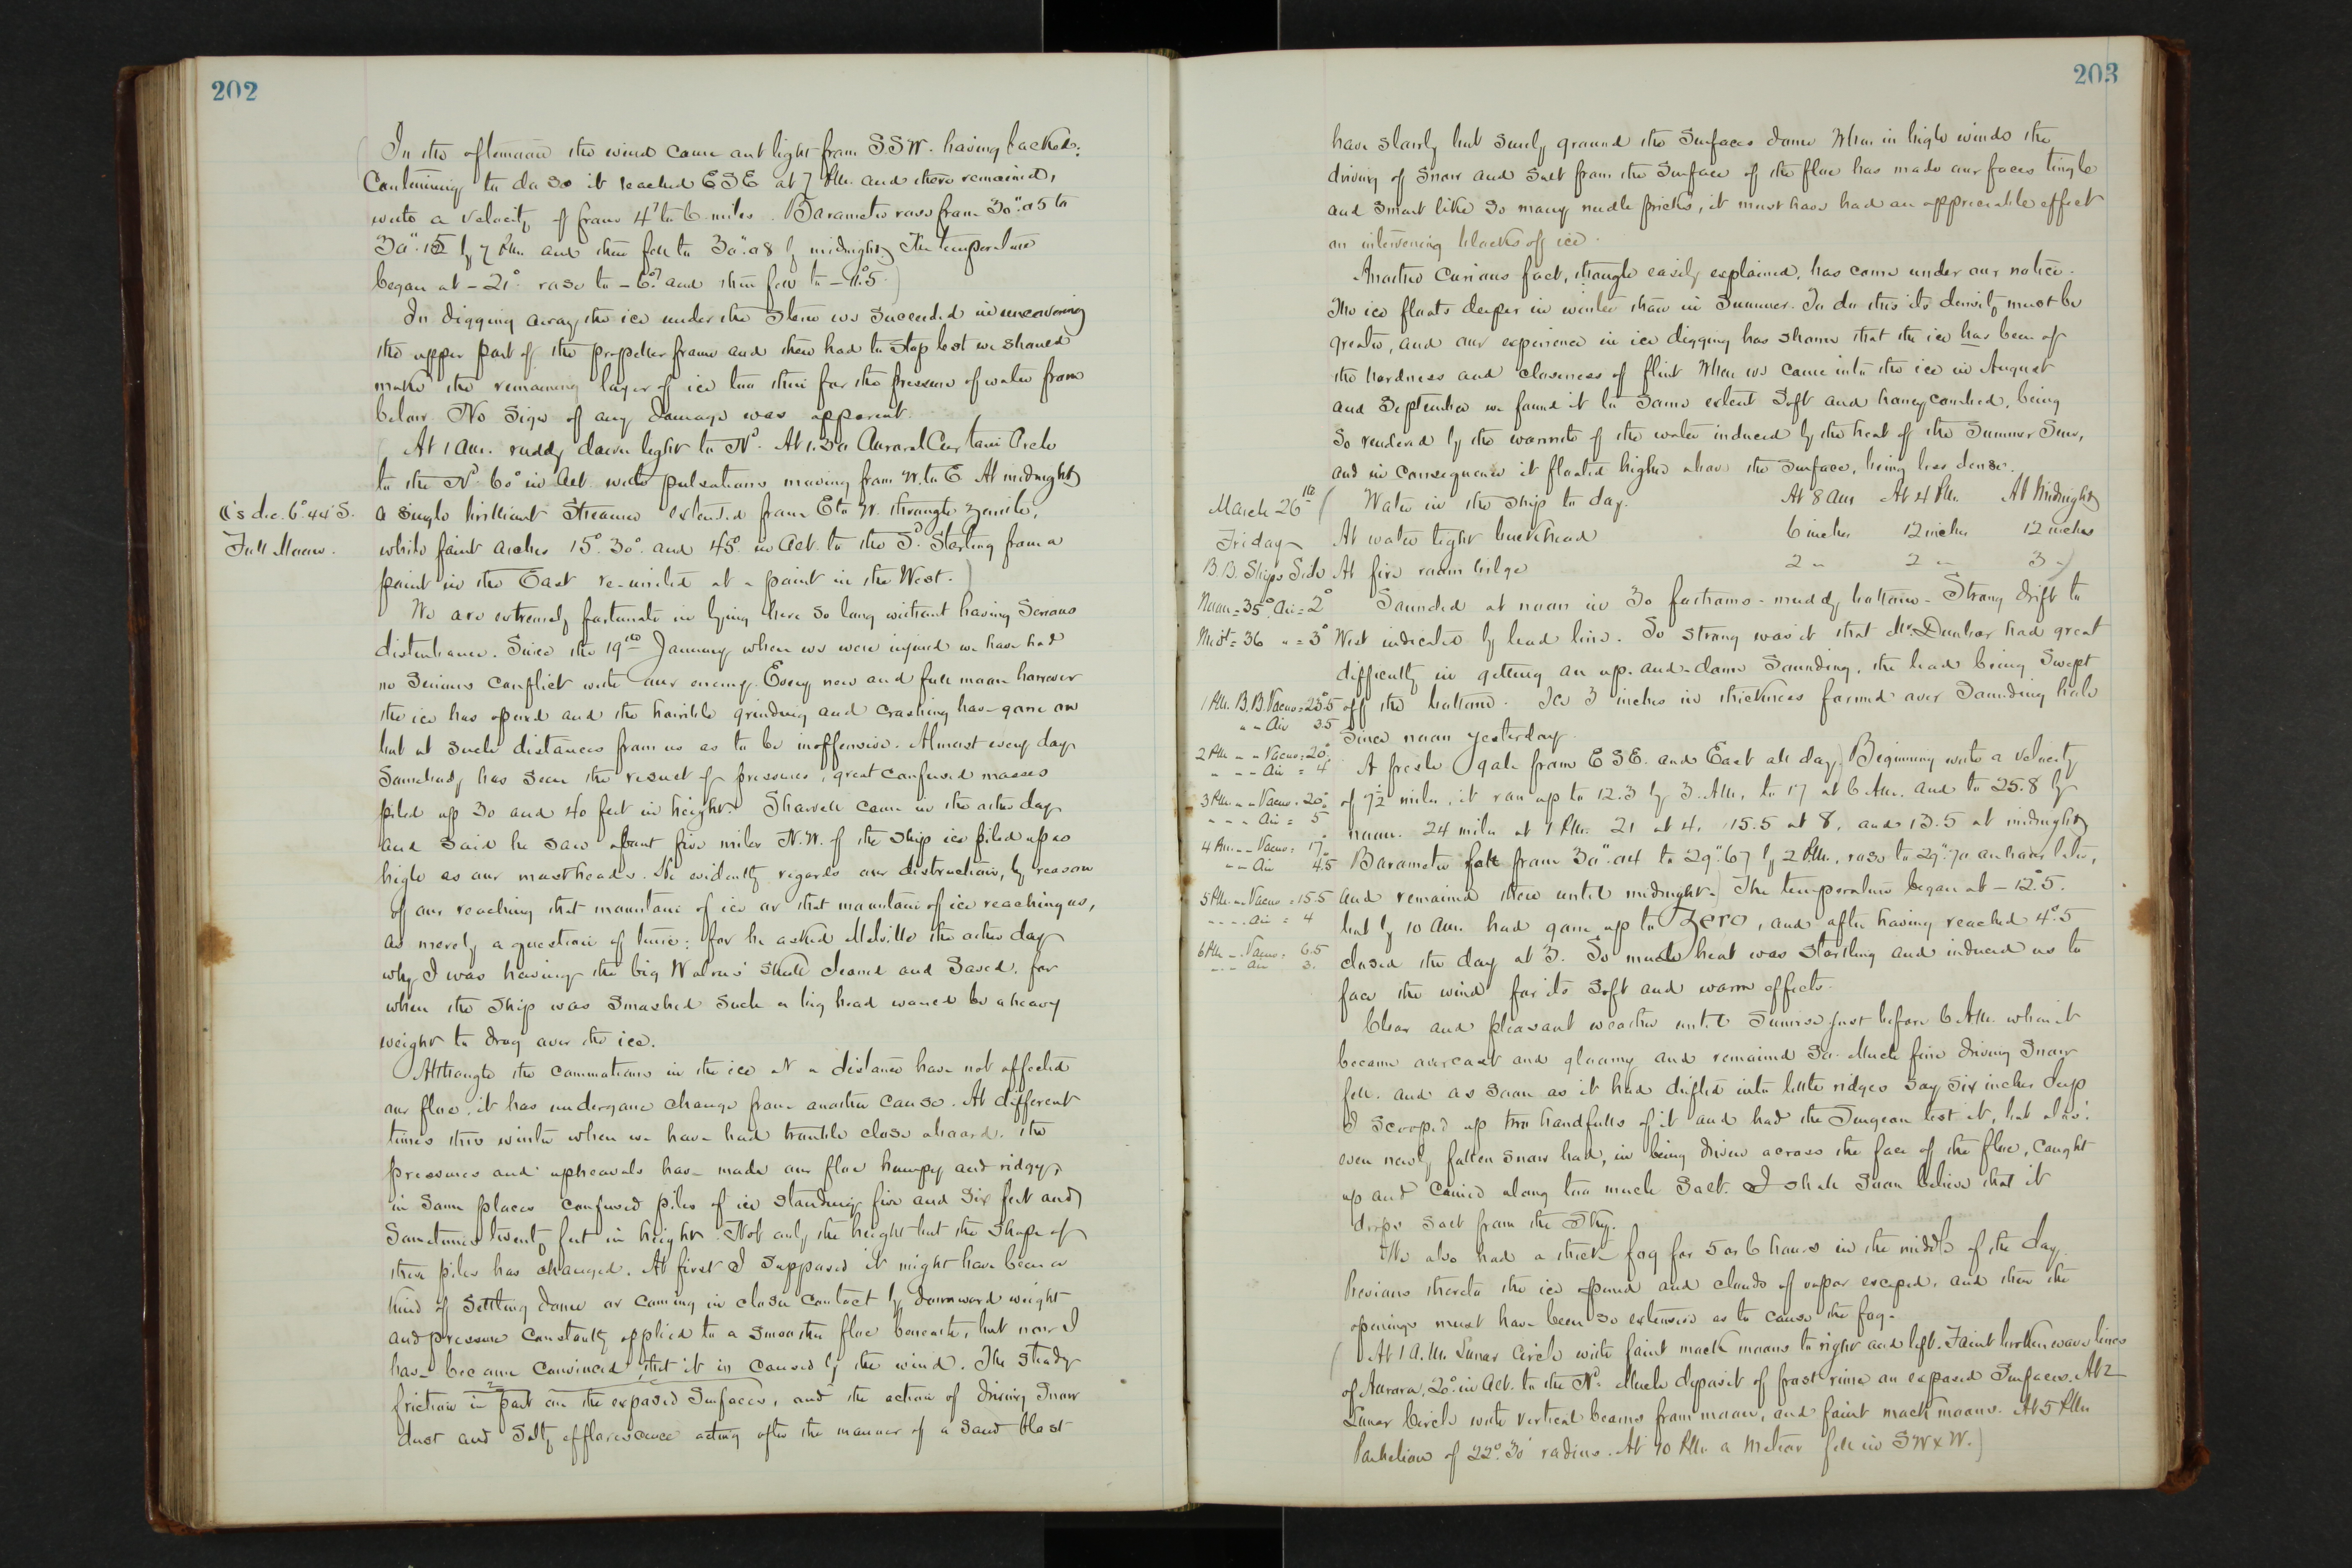 202
In the afternoon the wind came out light from SSW. having backed.
Continuing to do so it reached ESE at 7 P.M. and there remained,
with a velocity of from 4 to 6 miles. Barometer rose from 30".05 to
30".15 by 7 P.M. and then fell to 30".08 by midnight. The temperature
began at -21° rose to -6° and then fell to -11°.5)
In digging away the ice under the stern we succeeded in uncovering
the upper part of the propeller frame and then had to stop lest we should
make the remaining layer of ice too thin for the pressure of water from
below. No sign of any damage was apparent.
(At 1 A.M. ruddy dawn light to Nd. At 1.30 Auroral Curtain Arch
to the Nd. 60° in Alt. with pulsations moving from W. to E. At midnight
☾'s dec. 6°.44' S.
a single brilliant streamer extended from E to W. through zenith,
Full Moon.
while faint arches 15°. 30°. and 45° in Alt. to the Sd. starting from a
point in the East re-united at a point in the West.)
We are extremely fortunate in lying here so long without having serious
disturbance. Since the 19th January when we were injured we have had
no serious conflict with our enemy. Every new and full moon however
the ice has opened and the horrible grinding and crashing have gone on
but at such distances from us as to be inoffensive. Almost every day
somebody has seen the result of pressures, great confused masses
piled up 30 and 40 feet in height. Sharvell came in the other day
and said he saw about five miles N.W. of the ship ice piled up as
high as our mastheads. He evidently regards our destruction, by reason
of our reaching that mountain of ice or that mountain of ice reaching us,
as merely a question of time: for he asked Melville the other day
why I was having the big Walrus' skull cleaned and saved, for
when the ship was smashed such a big head would be a heavy
weight to drag over the ice.
Although the commotions in the ice at a distance have not affected
our floe, it has undergone change from another cause. At different
times this winter when we have had trouble close aboard, the
pressures and upheavals have made our floe humpy and ridgy,
in some places confused piles of ice standing five and six feet and
sometimes twenty feet in height. Not only the height but the shape of
these piles has changed. At first I supposed it might have been a
kind of settling down or coming in closer contact by downward weight
and pressure constantly applied to a smoother floe beneath, but now I
have become convinced that it is caused by the wind. The steady
friction in part on the exposed surfaces, and the action of driving snow
dust and salty efflorescence acting after the manner of a sand blast
203
have slowly but surely ground the surfaces down. When in high winds the
driving of snow and salt from the surface of the floe has made our faces tingle
and smart like so many needle pricks, it must have had an appreciable effect
on intervening blocks of ice.
Another curious fact, though easily explained, has come under our notice.
The ice floats deeper in winter than in summer. To do this its density must be
greater, and our experience in ice digging has shown that the ice has been of
the hardness and closeness of flint. When we came into the ice in August
and September we found it to some extent soft and honeycombed, being
so rendered by the warmth of the water induced by the heat of the Summer Sun,
and in consequence it floated higher above the surface, being less dense.
March 26th (Water in the ship to day. At 8 AM At 4 P.M. At Midnight
Friday At water tight bulkhead 6 inches 12 inches 12 inches
B.B. Ships Side At fire room bilge 2 " 2 " 3 ")
Noon = 35° Air = 2° Sounded at noon in 30 fathoms - muddy bottom - Strong drift to
Midt = 36 " = 3° West indicated by lead line. So strong was it that Mr. Dunbar had great
difficulty in getting an up-and-down sounding, the lead being swept
1 P.M. B.B. Vacuo = 23°.5 off the bottom. Ice 3 inches in thickness formed over sounding hole
" " Air 3.5 since noon yesterday.
2 P.M. " " Vacuo = 20°
" " " Air = 4 A fresh gale from ESE. and East all day) Beginning with a velocity
3 P.M. " " Vacuo = 20° of 7½ miles, it ran up to 12.3 by 3. A.M., to 17 at 6 A.M. and to 25.8 by
" " " Air = 5 noon. 24 miles at 1 P.M. 21 at 4, 15.5 at 8, and 13.5 at midnight
4 P.M. " " Vacuo = 17°
" " Air 4.5 Barometer fell from 30".04 to 29".67 by 2 P.M., rose to 29".70 an hour later,
5 P.M. " " Vacuo = 15.5 and remained there until midnight.) The temperature began at -12°.5.
" " " Air = 4 but by 10 A.M. had gone up to Zero, and after having reached 4°.5
6 P.M. " " Vacuo = 6.5 closed the day at 3. So much heat was startling and induced us to
" " Air 3.
face the wind for its soft and warm effects.
Clear and pleasant weather until sunrise just before 6 A.M. when it
became overcast and gloomy and remained so. Much fine driving snow
fell. and as soon as it had drifted into little ridges say six inches deep
I scooped up two handfulls of it and had the Surgeon test it, but alas!
even newly fallen snow had, in being driven across the face of the floe, caught
up and carried along too much salt. I shall soon believe that it
drops salt from the Sky.
We also had a thick fog for 5 or 6 hours in the middle of the day.
Previous thereto the ice opened and clouds of vapor escaped, and then the
openings must have been so extensive as to cause the fog.
(At 1 A.M. Lunar Circle with faint mock moons to right and left. Faint broken wave lines
of Aurora, 20° in Alt. to the Nd. Much deposit of frost rime on exposed surfaces. At 2
Lunar Circle with vertical beams from moon, and faint mock moons. At 5 P.M.
Parhelion of 22°.30' radius. At 10 P.M. a Meteor fell in SW x W.)